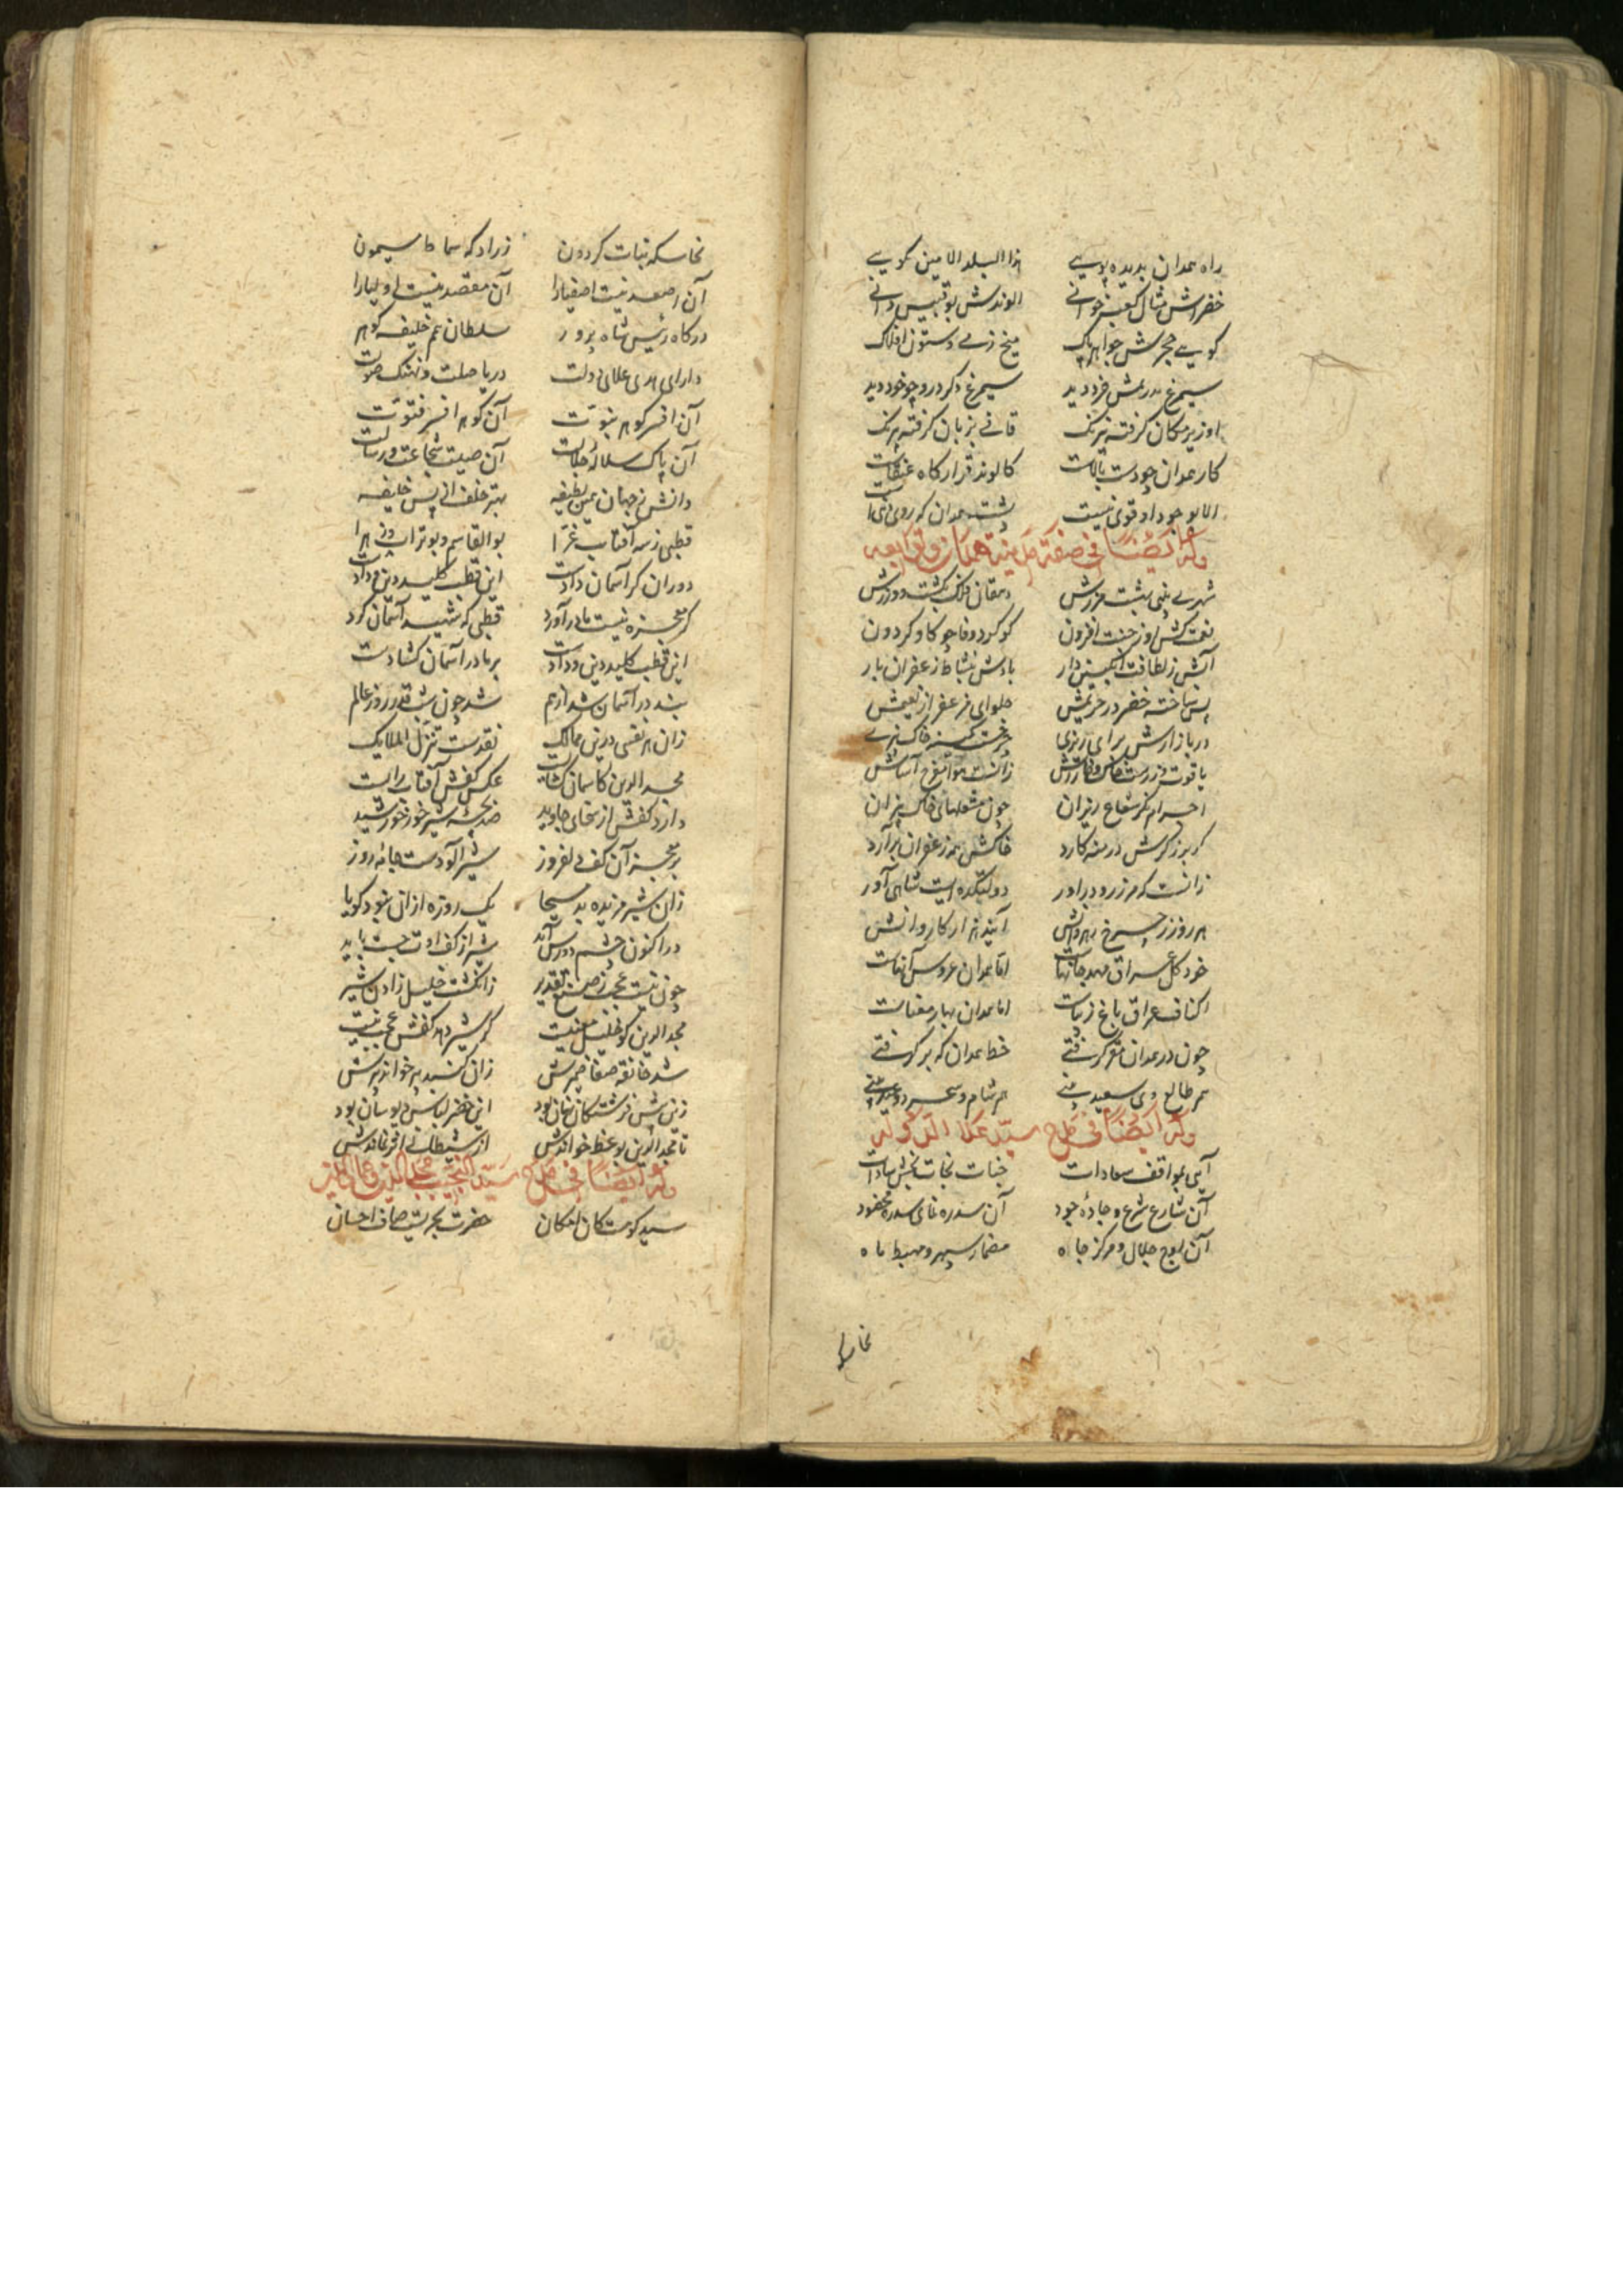 راه همدان بدیده پویی هذا البلد الامین گویی
خضراش مثال کعبه خوانی الوندش بوقبیس دانی
گویی حجرش جواهر پاک میخ زمی و ستون افلاک
سیمرغ فرو دید سیمرغ دگر درو چو خود دید
او زیر مکان گرفته نیرنگ قافی بزبان گرفته بر سنگ
کار همدان چو دست بالاست کالوند قرارگاه عنقاست
الا بوجود او قوی نیست پشت همدان که روی دنیاست
وله ایضا فی صفة مدینة همدان
شهری بینی بهشت مرزش دهقان فلک بکشت و ورزش
نعمت کش او ز جنت افزون گو گردد وفا چو گاو گردون
آتش ز لطافت انگبین دار بادش بنشاط زعفران بار
پس ساخته خضر در حریمش حلوای مزعفر از نعیمش
در بازارش برای ریزی
یاقوت
اجرام نگر شعاع ریزان چون مشعلهای خاک بیزان
خاکش همه زعفران برآرد
زانست که مرز رود براور دولتکده ایست شاهی آور
هر روز ز چرخ رهروانش آیند هزار کاروانش
خود کل عراق مهد جانهاست اما همدان عروس آنهاست
اکناف عراق باغ زیباست اما همدان بهار معناست
چون در همدان مقر گرفتی خط همدان که بر گرفتی
هم طالع وی سعید بینی هر شام و سحر دو عید بینی
وله ایضا فی مدح سید علاء الدین گوید
آیی بمواقف سعادات جنات نجات بخش سادات
آن شارع شرع و جاده جود آن سدره نمای سدره مخضود
آن اوج جلال و مرکز جاه مضمار سپهر و مهبط ماه
نخاسکه
نخاسکه بنات گردون زرادکه سماط سیمون
آن مصعد نیت اصفیا را آن مقصد نیست اولیا را
درگاه رئیس شاه پرور سلطان عم خلیفه گوهر
دارای هدی علای دولت دریا صلت و نهنگ صولت
آن افسر گوهر نبوت آن گوهر افسر فتوت
آن پاک سلاله جلالت آن صیت شجاعت و رسالت
دانش ز جهان عین لطیفه بهتر خلف از پس خلیفه
قطبی ز سه آفتاب غرا بوالقاسم و بوتراب و زهرا
دوران گر آسمان دادست این قطب کلید دین و دادست
گر معجزه نیست مادر آورد قطبی که نشید آسمان کرد
این قطب کلید دین و دادست بر ما در آسمان گشادست
بند در آسمان شد از هم شد چون شب قدر روز عالم
زان هر نفسی درین ممالک نقدست تنزل الملایک
مجدالدین کاسمان گشاست عکس کفش آفتاب رایست
دارد کفش از سخای جاوید صد بچه شیر خور خورشید
بر معجز آن کف دلفروز شیر آلودست جامه روز
زان شیر مزیده بد مسیحا یک روزه ازان نبود گویا
در اکنون چشم شیر از کف او
چون نیست عجب ز صنع تقدیر ز انگشت خلیل زادن شیر
مجدالدین کو خلیل معنیست گر شیر دهد کفش عجب نیست
شد خانقه صفا ضمیرش زان گنبد پیر خواند پیرش
زین پیش فرشتگان نهان بود این خضر لباس دیوسان بود
تا مجدالدین بوعظ خواندش از شیطانی اثر نماندش
وله ایضا فی مدح سید النجیب مجدالدین
سید گوست کان امکان حضرت بحریست صاف احسان